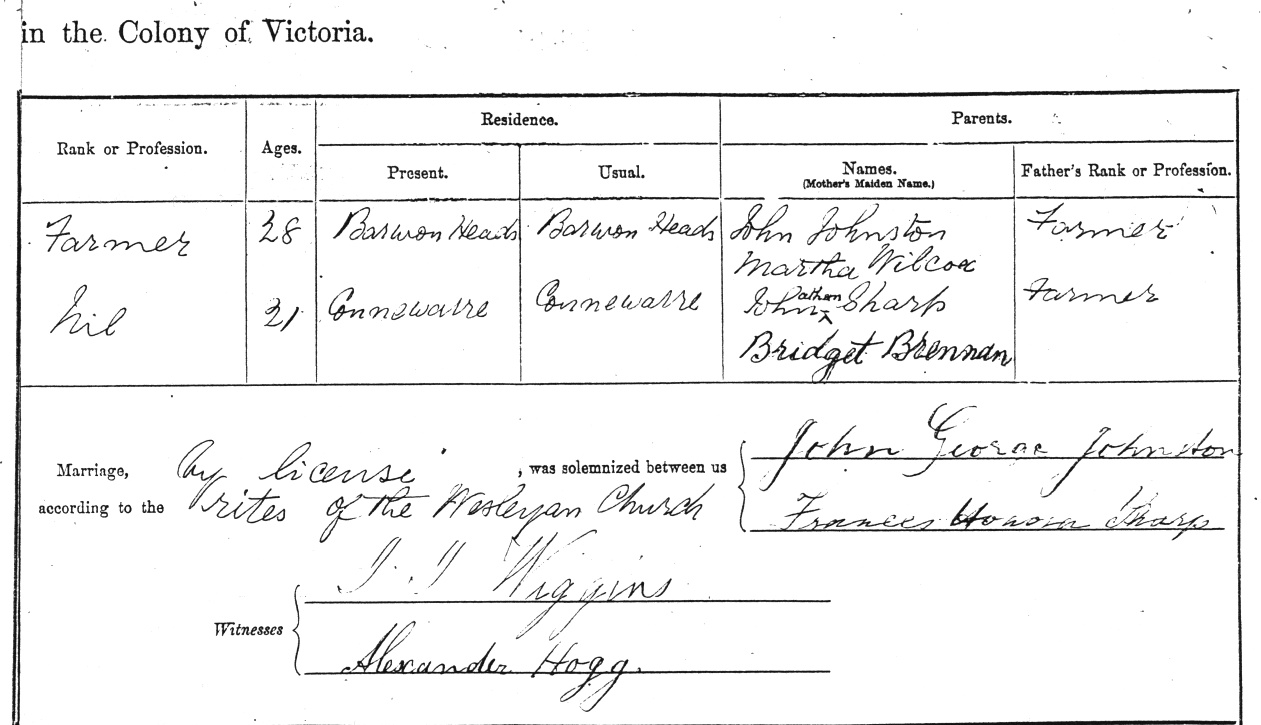 in the Colony of Victoria.
Rank or Profession. Ages. Residence. Parents.
Present. Usual. Names. Father's Rank or Profession.
(Mother's Maiden Name.)
Farmer 28 Barwon Heads Barwon Heads John Johnston Farmer
Martha Wilcox
Nil 21 Connewarre Connewarre Johnathon Sharp Farmer
Bridget Brennan
Marriage, by license, was solemnized between us John George Johnston
according to the rites of the Wesleyan Church Frances Sharp
Wiggins
Witnesses
Alexander Hogg.